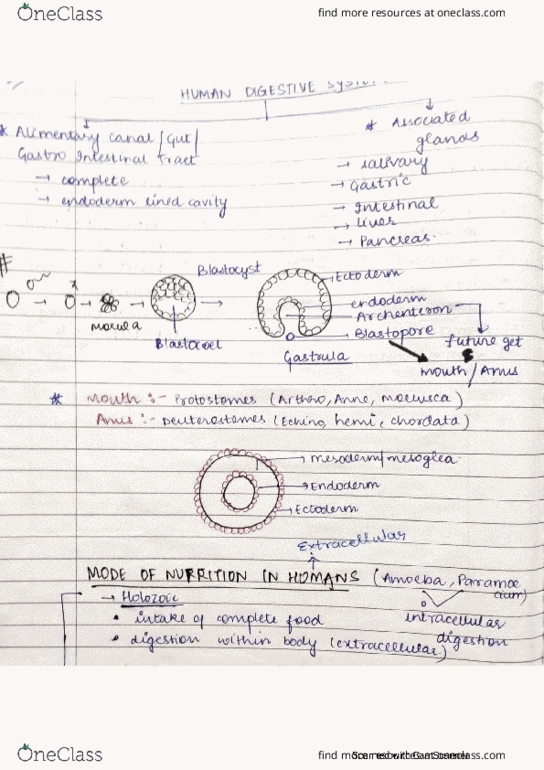 OneClass
find more resources at oneclass.com
HUMAN DIGESTIVE
* Alimentary canal / Gut /
Gastro Intestinal Tract
→ complete
→ endoderm lined cavity
* Associated
glands
→ salivary
→ Gastric
→ Intestinal
→ Liver
→ Pancreas.
#
Morula
Blastocyst
Blastocoel
Ectoderm
endoderm
Archenteron
Blastopore
Gastrula
future get
mouth / Anus
* Mouth :- Protostomes (Arthro, Anne, mollusca)
Anus :- Deuterostomes (Echino, hemi, chordata)
mesoderm/mesoglea
Endoderm
Ectoderm
Extracellular
MODE OF NURRITION IN HUMANS (Amoeba, Paramoe
cium)
→ Holozoic
• intake of complete food
• digestion within body (extracellular)
intracellular
digestion
OneClass